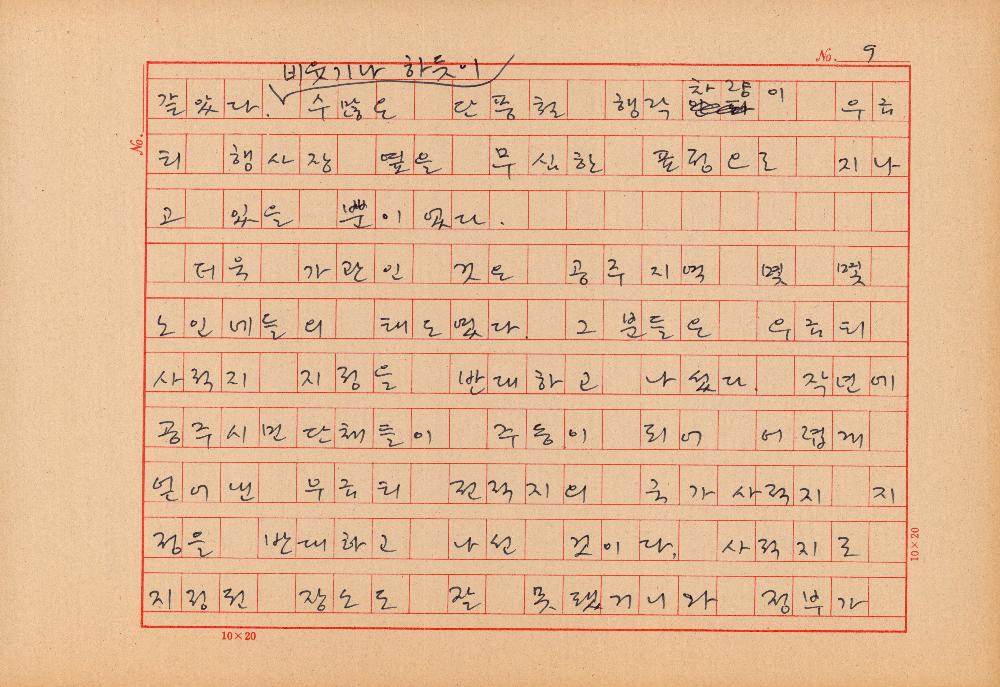 No. 9
비웃기나 하듯이
같았다. 수많은 단풍철 행락 차량이 우금
티 행사장 옆을 무심한 표정으로 지나
고 있을 뿐이었다.
더욱 가관인 것은 공주지역 몇 몇
노인네들의 태도였다. 그 분들은 우금티
사적지 지정을 반대하고 나섰다. 작년에
공주시민단체들이 주동이 되어 어렵게
얻어낸 우금티 전적지의 국가사적지 지
정을 반대하고 나선 것이다. 사적지로
지정된 장소도 잘 못됐거니와 정부가
No.
10×20
10×20